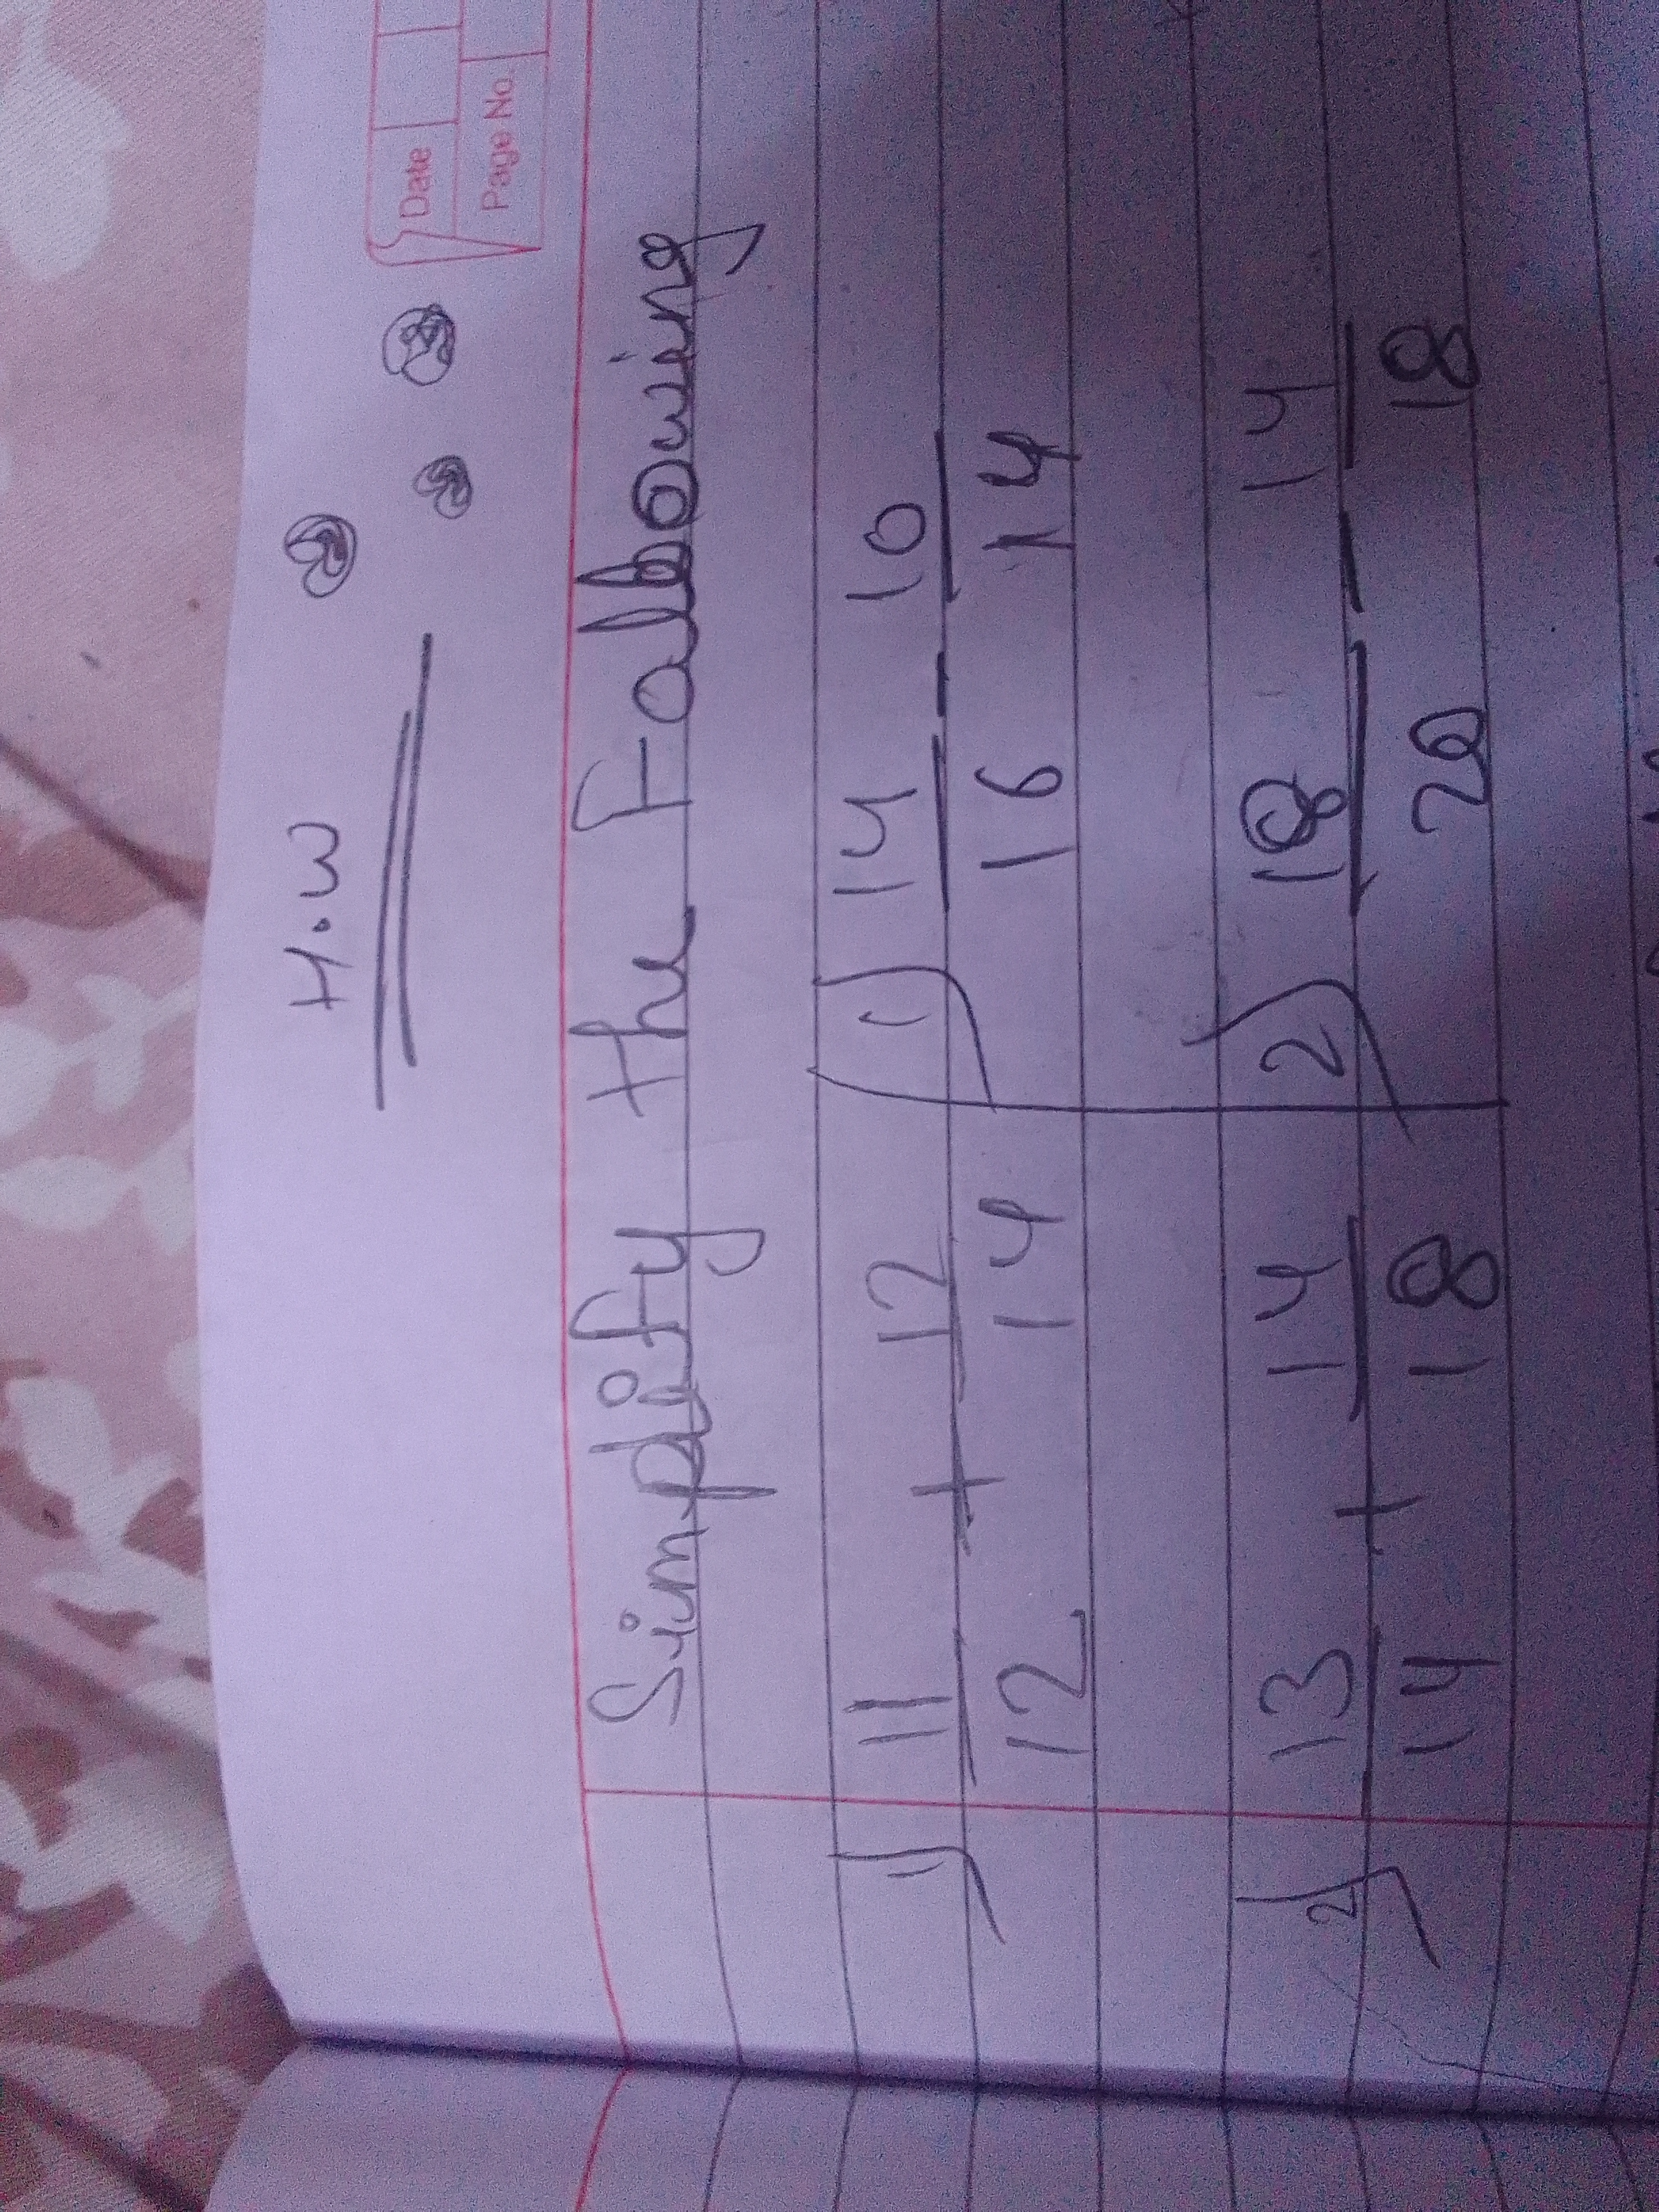 Date
Page No.
H.W
Simplify the Following
1) 11/12 + 12/14
1) 14/16 - 10/14
2) 13/14 + 14/18
2) 18/20 - 14/18